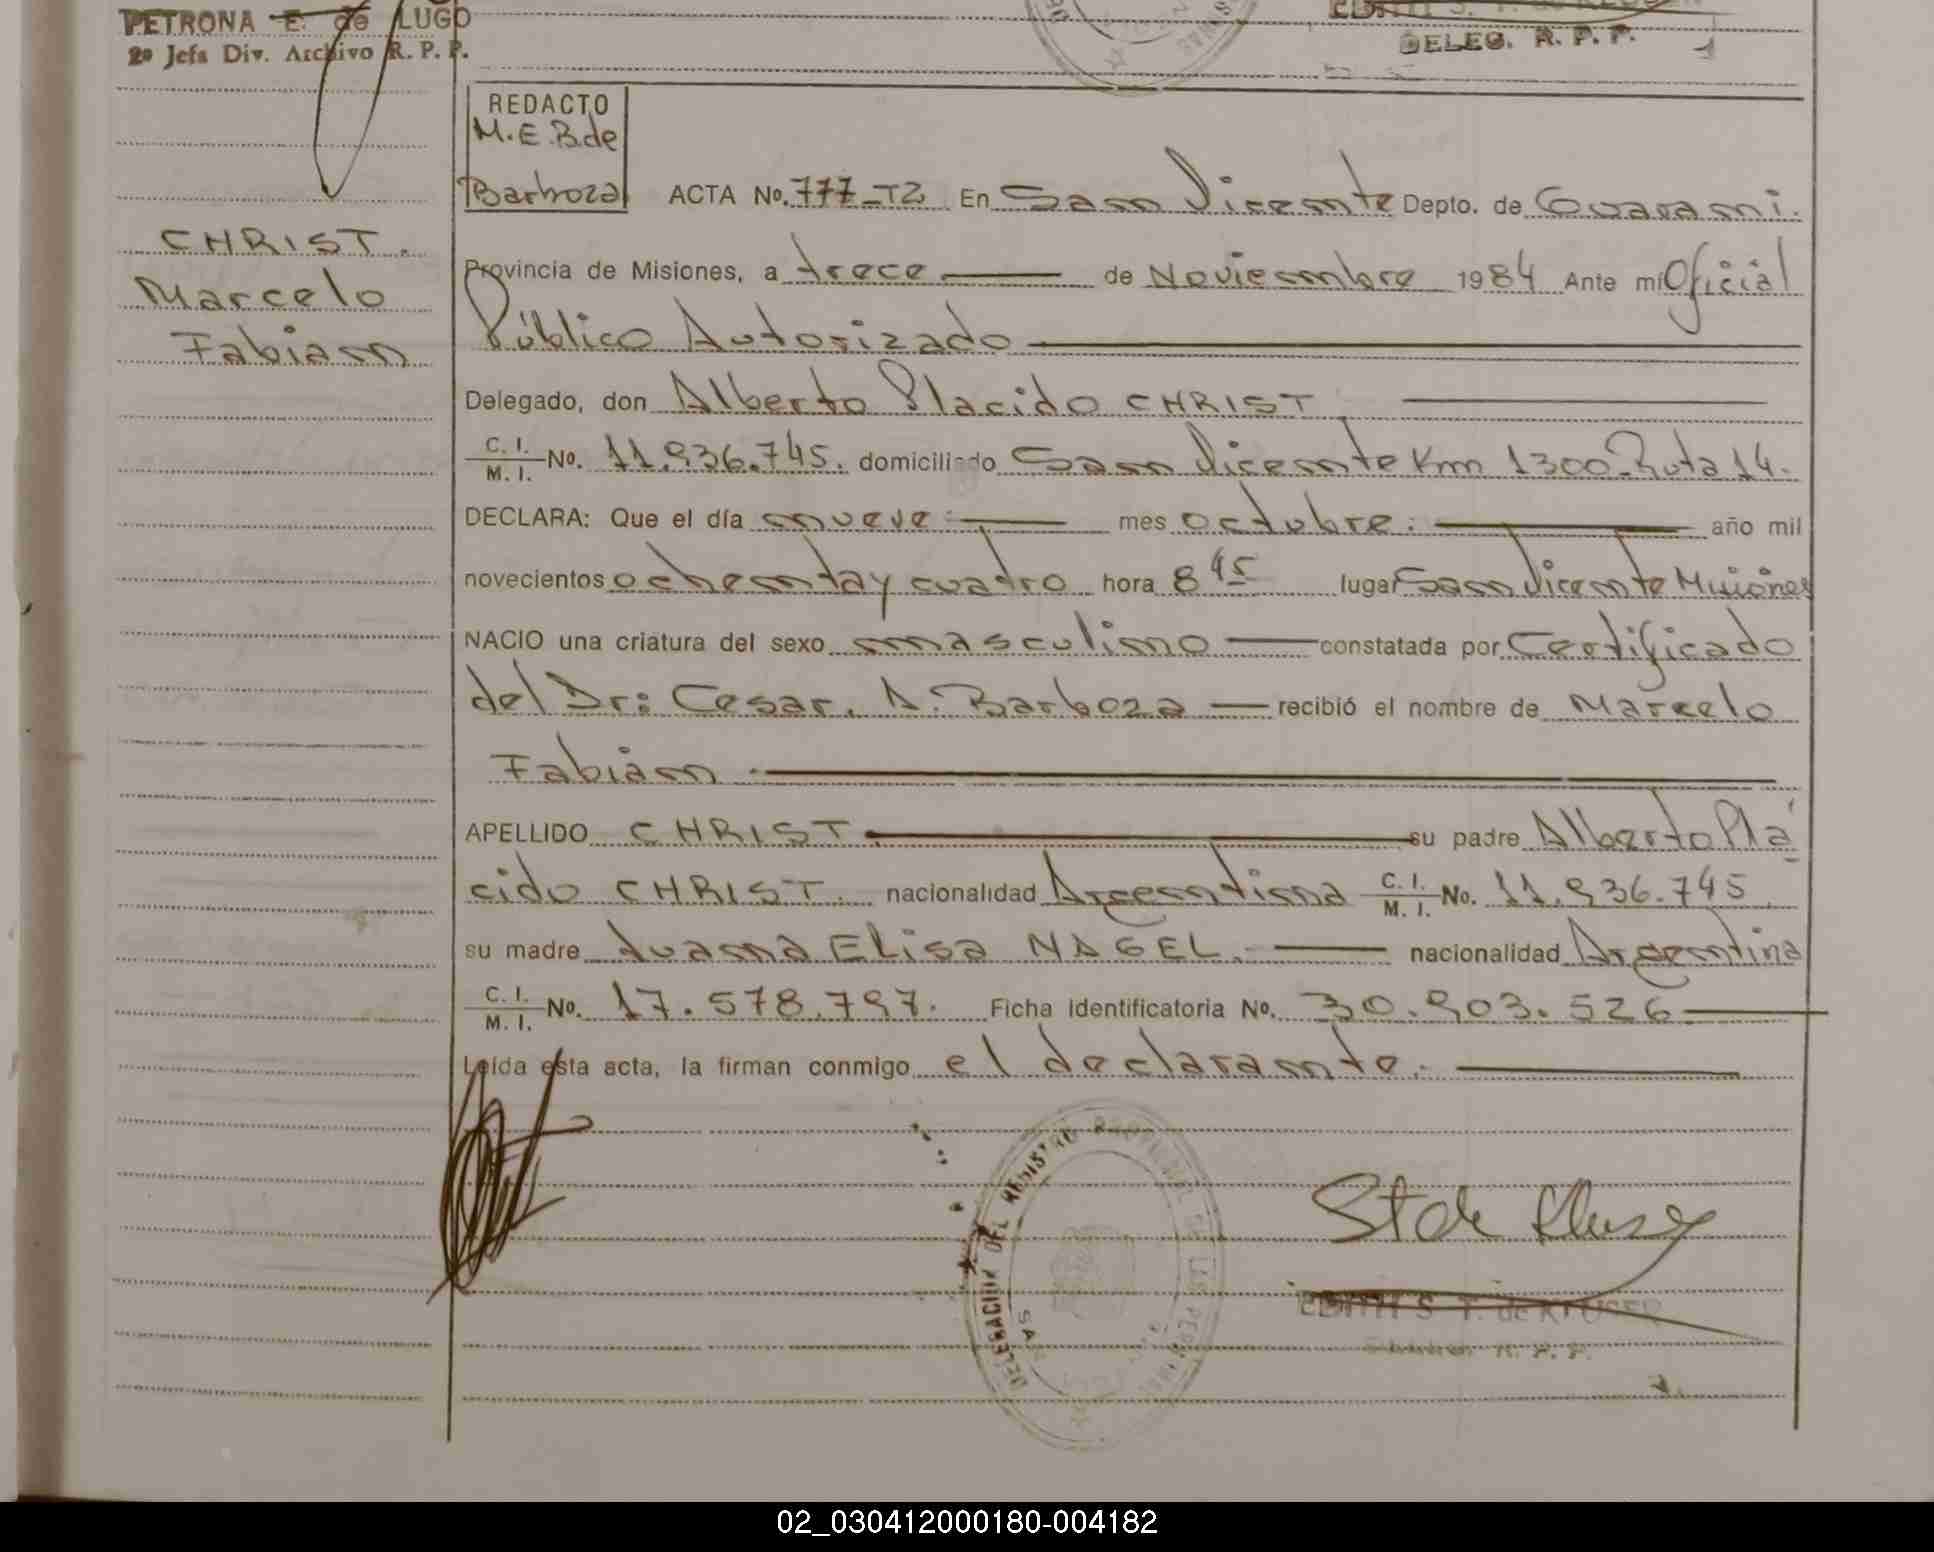 PETRONA E. de LUGO
2º Jefa Div. Archivo R. P. P.
DELEG. R. P. P.
REDACTO
M.E.B.de
Barboza ACTA No. 777-T2 En San Vicente Depto. de Guarani.
CHRIST.
Marcelo
Fabian
Provincia de Misiones, a trece de Noviembre 1984 Ante mi Oficial
Público Autorizado
Delegado, don Alberto Placido CHRIST.
C. I. / M. I. No. 11.936.745. domiciliado San Vicente Km 1300 Ruta 14.
DECLARA: Que el día nueve mes octubre. año mil
novecientos ochenta y cuatro hora 8 45 lugar San Vicente Misiones
NACIO una criatura del sexo masculino constatada por Certificado
del Dr: Cesar. A. Barboza recibió el nombre de Marcelo
Fabian
APELLIDO CHRIST. su padre Alberto Plá
cido CHRIST. nacionalidad Argentina C. I. / M. I. No. 11.936.745
su madre Juana Elisa NAGEL. nacionalidad Argentina
C. I. / M. I. No. 17.578.797. Ficha identificatoria No. 30.903.526
Leída esta acta, la firman conmigo el declarante.
DELEGACION DEL REGISTRO PROVINCIAL DE LAS PERSONAS
SAN VICENTE
EDITH S. T. de KLUSER
R. P. P.
02_030412000180-004182